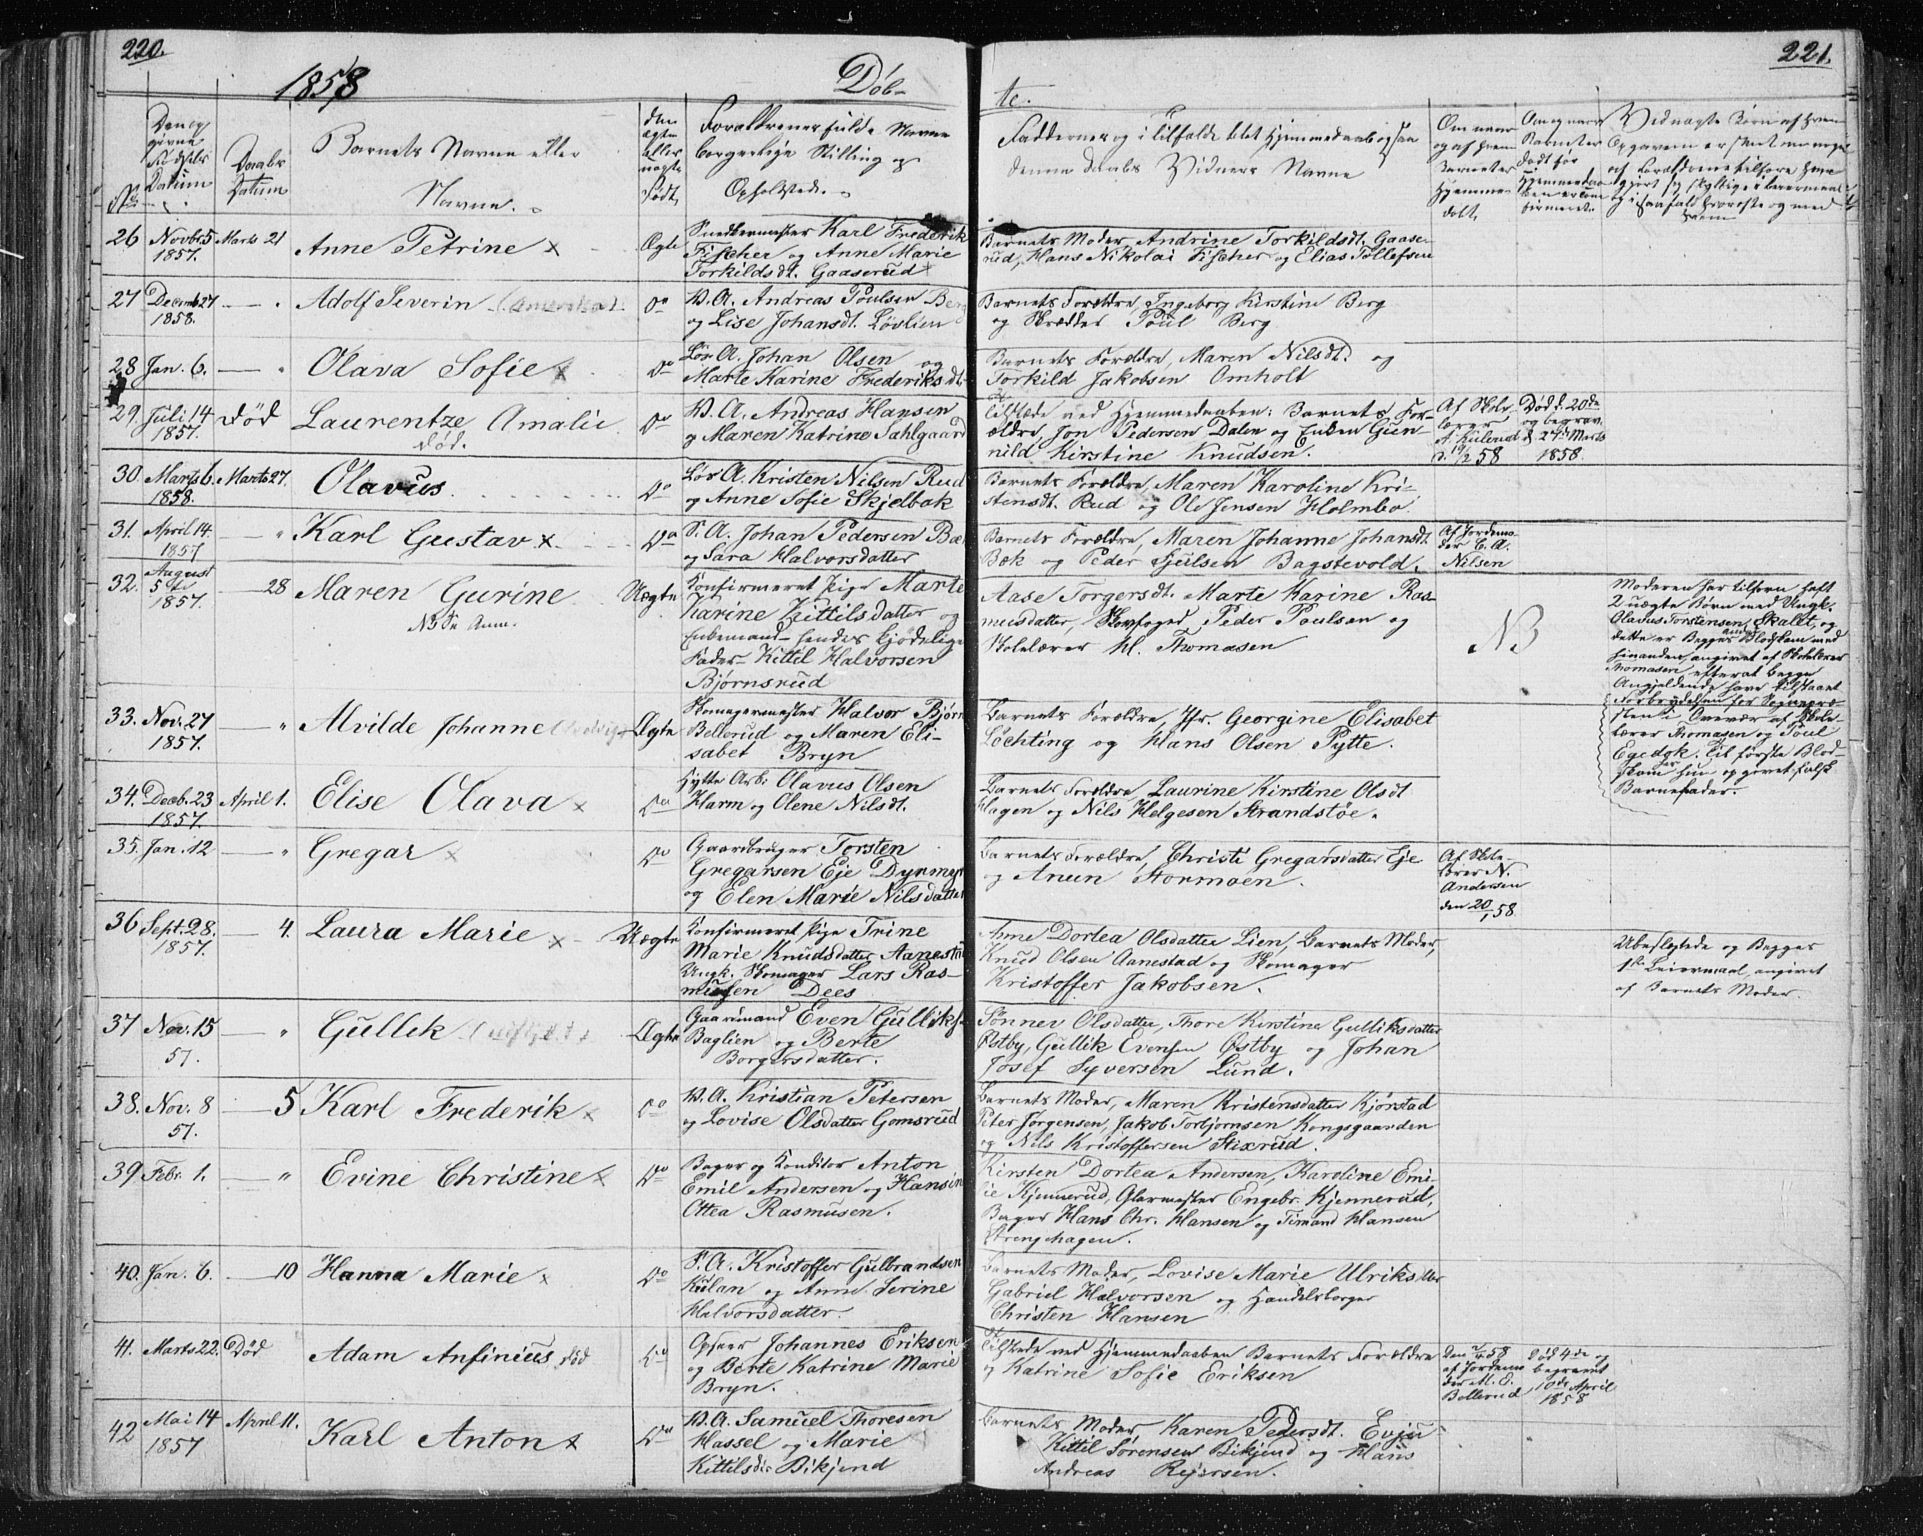 220.
1858
Døb-
No
Den op
givne
Fødsels
Datum
Daabs
Datum
Barnets Navne eller
Navne.
den
ægte
eller
uægte
født
Forældrenes fulde Navne
borgerlige Stilling og
Opholdsted.
26 Novbr 5 1857. Marts 21 Anne Petrine x Ægte
Snedkermester Karl Frederik
Fischer og Anne Marie
Torkildsdt. Gaaserud
27 Decemb 27 1858. — " Adolf Severin Do
B.A. Andreas Poulsen Berg
og Lise Johansdt. Løvlien
28 Jan. 6. — " Olava Sofie x Do
Løs A. Johan Olsen og
Marte Karine Frederiksdt.
29. Juli 14 1857. død Laurentze Amalie død. Do
B.A. Andreas Hansen
og Maren Katrine Sahlgaard
30. Marts 6. 1858. Marts 27. Olavus Do
Løs A. Kristen Nilsen Rud
og Anne Sofie Skjelbæk
31. April 14. 1857 — " Karl Gustav x Do
S.A. Johan Pedersen Bæk
og Sara Halvorsdatter
32. August 5te 1857. — 28 Maren Gurine Uægte
Konfirmeret Pige Marte
Karine Kittilsdatter og
Enkemand hendes kjødelige
Fader Kittil Halvorsen
Bjørnsrud
33. Nov. 27 1857. — " Alvilde Johanne Ægte
Skomagermester Halvor Bjørn
Bellerud og Maren Eli-
sabet Bryn
34. Decb. 23 1857. April 1. Elise Olava x Do
Hytte Arb. Olavus Olsen
Harm og Olene Nilsdt.
35. Jan. 12 — " Gregar x Do
Gaardbruger Torsten
Gregarsen Eje Dyrmyr
og Elen Marie Nilsdatter
36 Sept. 28. 1857. — 4. Laura Marie x Uægte
Konfirmeret Pige Trine
Marie Knudsdatter Aanestad
Ungk. Skomager Lars Ras-
mussen Dees
37 Nov. 15 57. — " Gullik Ægte
Gaardmand Even Gulliks.
Baglien og Berte
Borgersdatter.
38. Nov. 8 57. — 5 Karl Frederik x Do
B.A. Kristian Petersen
og Lovise Olsdatter Gomsrud
39 Febr. 1. — " Evine Christine x Do
Bager og Konditor Anton
Emil Andersen og Hansine
Ottea Rasmusen.
40. Jan. 6. — 10 Hanna Marie x Do
F.A. Kristoffer Gulbrandsen
Kulan og Anne Serine
Halvorsdatter.
41. Marts 22. Død Adam Anfinius død Do
Opseer Johannes Eriksen
og Berte Katrine Marie
Bryn.
42 Mai 14 1857 April 11. Karl Anton x Do
B.A. Samuel Thoresen
Hassel og Marie
Kittilsdr. Bikjend
221.
te.
Faddernes og i tilfælde blot Hjemmedaab ogsaa
denne Daabs Vidners Navne
Om naar
og af hvem
Barnet er
Hjemme-
døbt.
Barnet er
død før
Hjemmedaa-
ben er con-
firmeret.
Barnets Moder, Andrine Torkildsdt. Gaase-
rud, Hans Nikolai Fischer og Elias Tollefsen
Barnets Forældre, Ingeborg Kirstine Berg
og Skrædder Poul Berg
Barnets Forældre, Maren Nilsdt. og
Torkild Jakobsen Omholt
tilstede ved Hjemmedaaben: Barnets For-
ældre Jon Pedersen Dalen og Enken Gun-
nild Kirstine Knudsen.
Af Skole-
lærer
A. Kulerud
d. 19/2 58
Død d. 20de
og begrav.
d. 27de Marts
1858.
Barnets Forældre, Maren Karoline Kri-
stensdt. Rud og Ole Jensen Holmbo.
Barnets Forældre, Maren Johanne Johansdt.
Bæk og Peder Gulsen Bagstevold.
Af Jordemo-
der C. A.
Nilsen
Aase Torgersdt. Marte Karine Ras-
musdatter, Skovfoged Peder Poulsen og
Skolelærer H. Thomasen
NB
Moderen har tilforn havt
2 uægte Børn med Ungk.
Olavus Torstensen Skallet, og
dette er Begges Blodskam med
hinanden, angivet af Skolelærer
Thomasen, efterat begge
Angjeldende have tilstaaet
Forbrydelsen for Sognepræ-
sten i Overvær af Skole-
lærer Thomasen og Poul
Egedok. Til første Blod-
skam har hun opgivet falsk
Barnefader.
Barnets Forældre, Jfr. Georgine Elisabet
Løchting og Hans Olsen Pytte.
Barnets Forældre, Laurine Kirstine Olsdt
Hagen og Nils Helgesen Strandstøe.
Barnets Forældre, Christi Gregarsdatter Eje
og Anun Stormoen.
Af Skole-
lærer N.
Andersen
den 20/1 58
Anne Dortea Olsdatter Lien, Barnets Moder,
Knud Olsen Aanestad og Skomager
Kristoffer Jakobsen.
Ubeslægtede og Begges
1ste Leiermaal, angivet
af Barnets Moder.
Sønnev Olsdatter, Thore Kirstine Gulliksdatter
Østby, Gullik Evensen Østby og Johan
Josef Syversen Lund.
Barnets Moder, Maren Kristensdatter Kjørstad
Peter Jørgensen, Jakob Torbjørnsen Kongsgaarden
og Nils Kristoffersen Stixrud.
Kirsten Dortea Andersen, Karoline Emi-
lie Kjennerud, Glarmester Engebr. Kjennerud,
Bager Hans Chr. Hansen og Timand Hansen
Strengehagen.
Barnets Moder, Lovise Marie Ulriksdtr
Gabriel Halvorsen og Handelsborger
Christen Hansen
Tilstede ved Hjemmedaaben Barnets Forældre
og Katrine Sofie Eriksen
af Jordemo-
der M. E.
Bellerud
Død 4de og
begravet
10de April
1858
Barnets Moder Karen Pedersdt. Evju
Kittil Sørensen Bikjend og Hans
Andreas Rejersen.